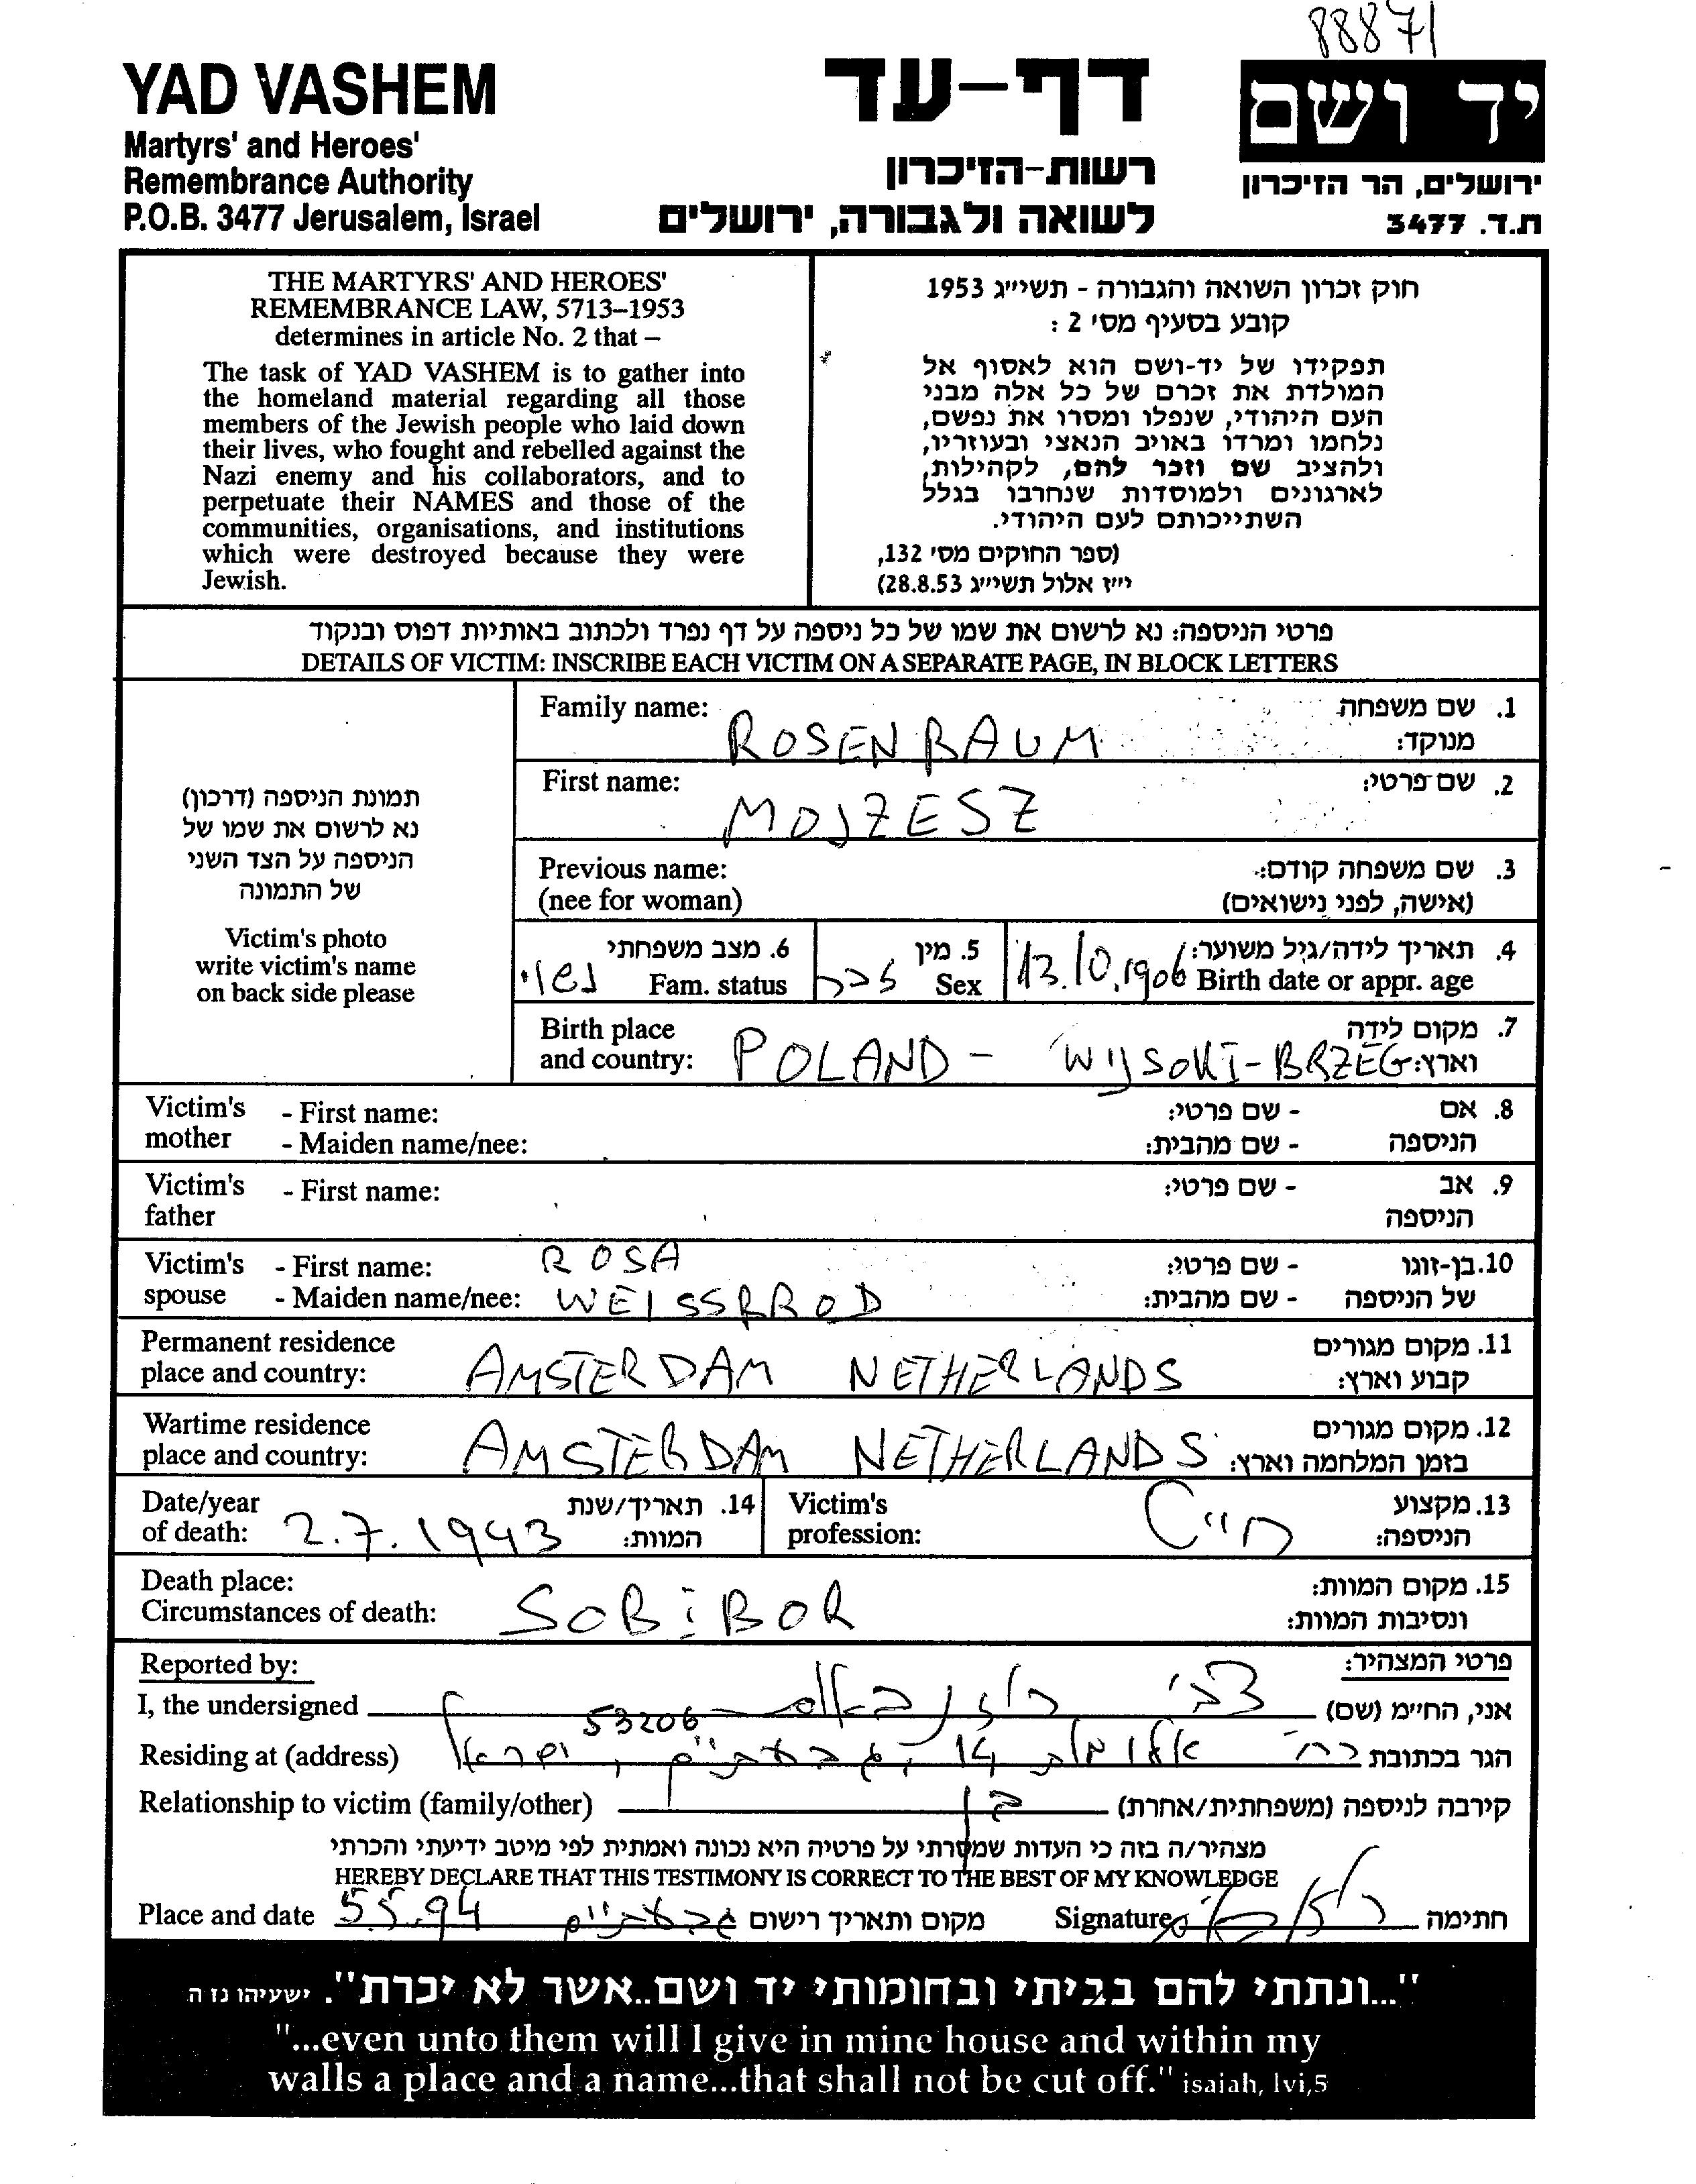 88871
YAD VASHEM
Martyrs' and Heroes'
Remembrance Authority
P.O.B. 3477 Jerusalem, Israel
דף-עד
רשות-הזיכרון
לשואה ולגבורה, ירושלים
יד ושם
ירושלים, הר הזיכרון
ת.ד. 3477
THE MARTYRS' AND HEROES'
REMEMBRANCE LAW, 5713–1953
determines in article No. 2 that –
The task of YAD VASHEM is to gather into
the homeland material regarding all those
members of the Jewish people who laid down
their lives, who fought and rebelled against the
Nazi enemy and his collaborators, and to
perpetuate their NAMES and those of the
communities, organisations, and institutions
which were destroyed because they were
Jewish.
חוק זכרון השואה והגבורה - תשי״ג 1953
קובע בסעיף מס׳ 2 :
תפקידו של יד-ושם הוא לאסוף אל
המולדת את זכרם של כל אלה מבני
העם היהודי, שנפלו ומסרו את נפשם,
נלחמו ומרדו באויב הנאצי ובעוזריו,
ולהציב שם וזכר להם, לקהילות,
לארגונים ולמוסדות שנחרבו בגלל
השתייכותם לעם היהודי.
(ספר החוקים מס׳ 132,
י״ז אלול תשי״ג 28.8.53)
פרטי הניספה: נא לרשום את שמו של כל ניספה על דף נפרד ולכתוב באותיות דפוס ובנקוד
DETAILS OF VICTIM: INSCRIBE EACH VICTIM ON A SEPARATE PAGE, IN BLOCK LETTERS
תמונת הניספה (דרכון)
נא לרשום את שמו של
הניספה על הצד השני
של התמונה
Victim's photo
write victim's name
on back side please
Family name: ROSENBAUM 1. שם משפחה
מנוקד:
First name: MOJZESZ 2. שם פרטי:
Previous name: 3. שם משפחה קודם:
(nee for woman) (אישה, לפני נישואים)
4. תאריך לידה/גיל משוער: 13.10.1906 Birth date or appr. age
5. מין זכר Sex
6. מצב משפחתי נשוי Fam. status
Birth place 7. מקום לידה
and country: POLAND - WIJSOKI-BRZEG וארץ:
Victim's - First name: - שם פרטי: 8. אם
mother - Maiden name/nee: - שם מהבית: הניספה
Victim's - First name: - שם פרטי: 9. אב
father הניספה
Victim's - First name: ROSA - שם פרטי: 10. בן-זוגו
spouse - Maiden name/nee: WEISSBROD - שם מהבית: של הניספה
Permanent residence 11. מקום מגורים
place and country: AMSTERDAM NETHERLANDS קבוע וארץ:
Wartime residence 12. מקום מגורים
place and country: AMSTERDAM NETHERLANDS בזמן המלחמה וארץ:
Date/year 14. תאריך/שנת
of death: 2.7.1943 המוות:
Victim's 13. מקצוע
profession: חייט הניספה:
Death place: 15. מקום המוות:
Circumstances of death: SOBIBOR ונסיבות המוות:
Reported by: פרטי המצהיר:
I, the undersigned צבי רוזנבאום אני, החי״מ (שם)
53206
Residing at (address) 14, גבעתיים, ישראל הגר בכתובת
Relationship to victim (family/other) בן קירבה לניספה (משפחתית/אחרת)
מצהיר/ה בזה כי העדות שמסרתי על פרטיה היא נכונה ואמתית לפי מיטב ידיעתי והכרתי
HEREBY DECLARE THAT THIS TESTIMONY IS CORRECT TO THE BEST OF MY KNOWLEDGE
Place and date 5.5.94 גבעתיים מקום ותאריך רישום Signature חתימה
"...ונתתי להם בביתי ובחומותי יד ושם..אשר לא יכרת". ישעיהו נו ה
"...even unto them will I give in mine house and within my
walls a place and a name...that shall not be cut off." isaiah, lvi,5